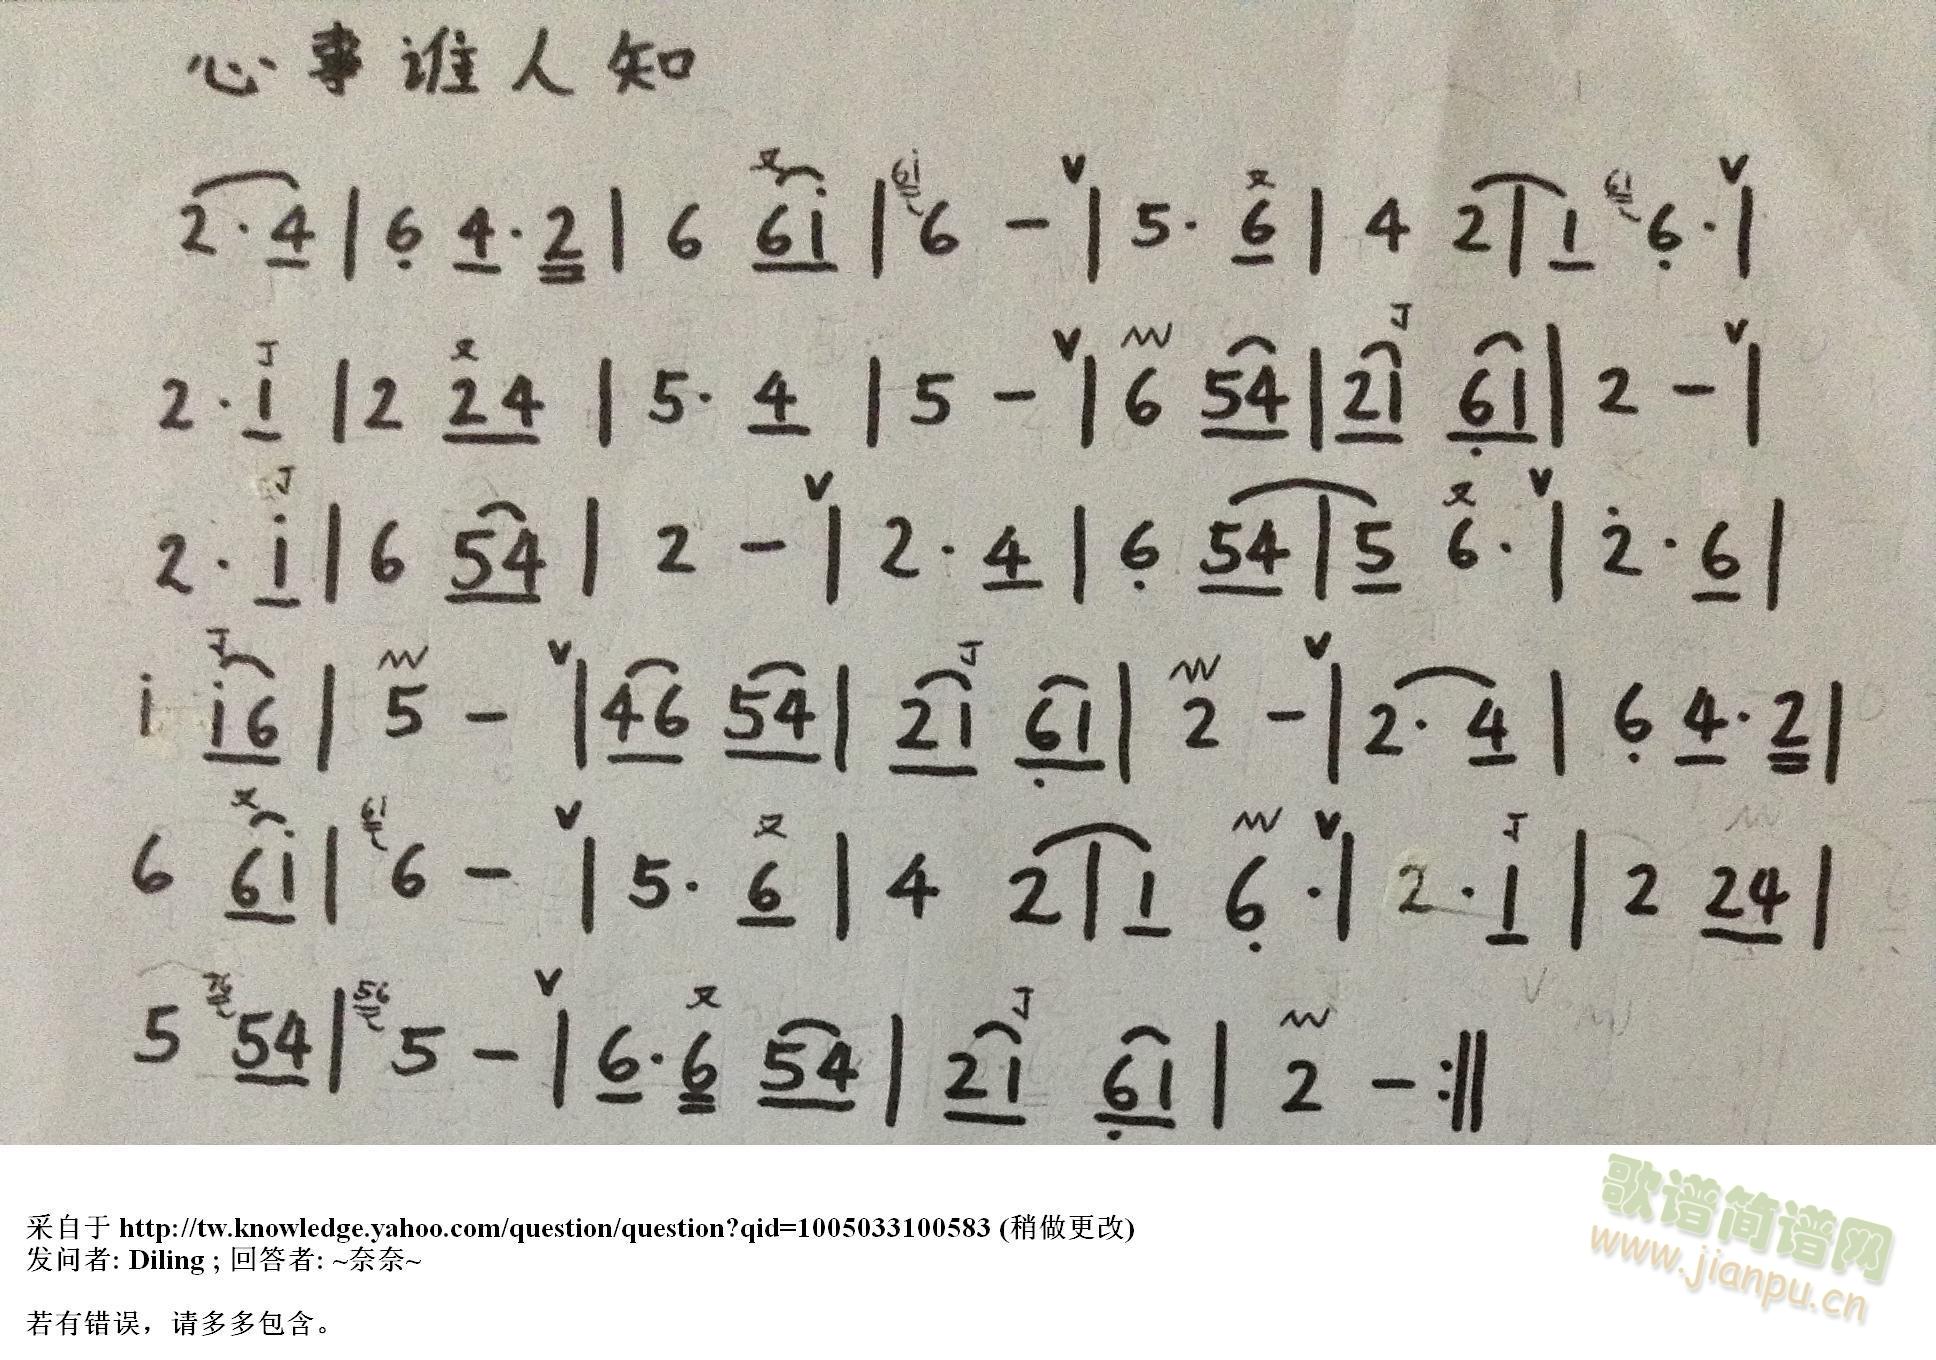 心事谁人知
2·4|6̣ 4·2|6 6i|⁶ⁱ6 -ⱽ|5· 6|4 2|1 ⁶¹6̣·ⱽ|
2·1|2 24|5· 4|5 -ⱽ|6 54|21 6̣1|2 -ⱽ|
2·i|6 54|2 -ⱽ|2·4|6̣ 54|5 6·ⱽ|2̇·6|
i i6|5 -ⱽ|46 54|21 6̣1|2 -ⱽ|2·4|6̣ 4·2|
6 6i|⁶ⁱ6 -ⱽ|5· 6|4 2|1 6̣·ⱽ|2·1|2 24|
5 54|⁵⁶5 -ⱽ|6·6 54|21 6̣1|2 -:||
采自于 http://tw.knowledge.yahoo.com/question/question?qid=1005033100583 (稍做更改)
发问者: Diling ; 回答者: ~奈奈~
若有错误，请多多包含。
歌谱简谱网
www.jianpu.cn